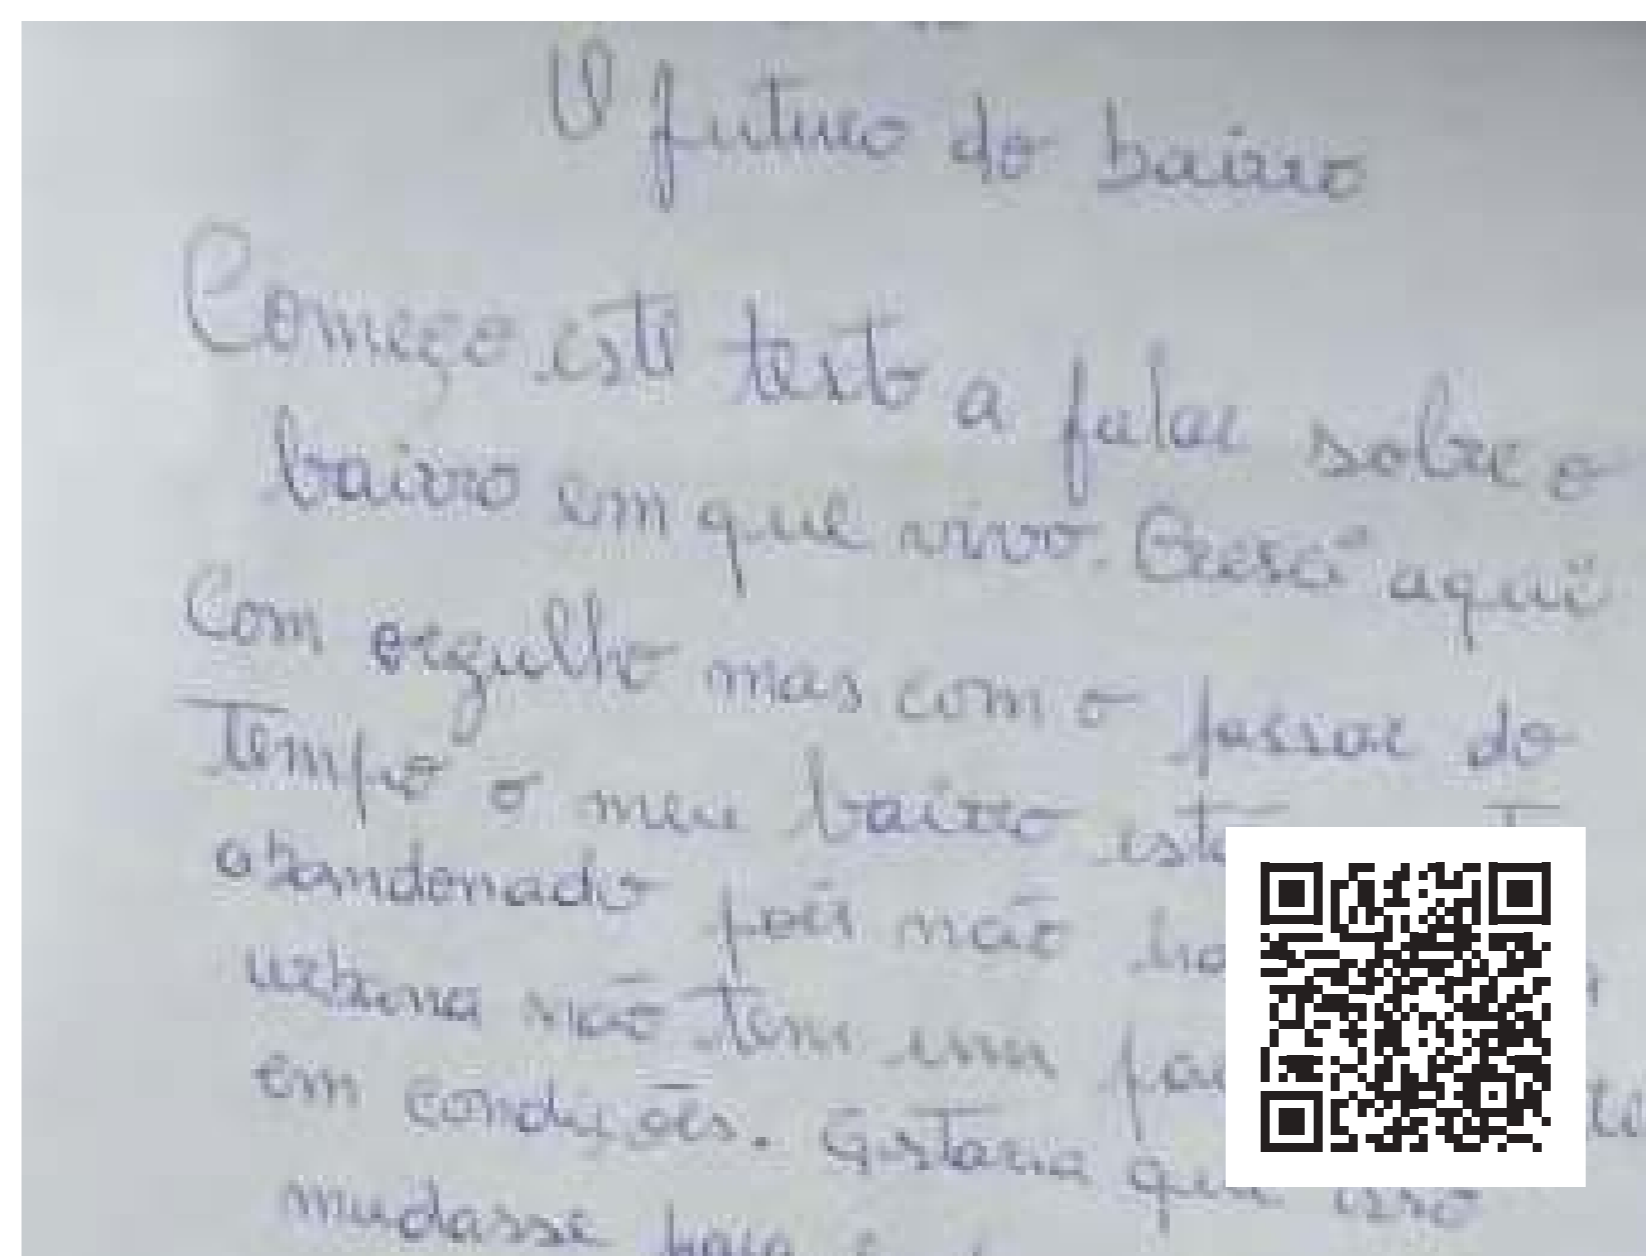 O futuro do bairro
Começo este texto a falar sobre o
bairro em que vivo. Cresci aqui
Com orgulho mas com o passar do
Tempo o meu bairro está
abandonado pois não
urbana não tem um
em condições. Gostaria que isso
mudasse para